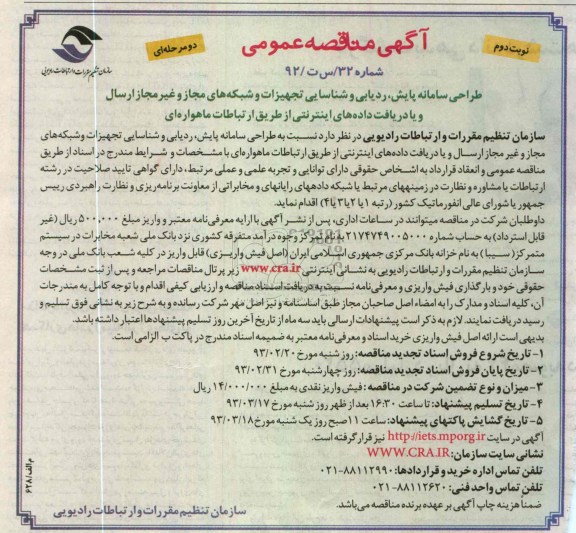 نوبت دوم
آگهی مناقصه عمومی
دو مرحله‌ای
سازمان تنظیم مقررات و ارتباطات رادیویی
شماره ۳۲/س ت/۹۲
طراحی سامانه پایش، ردیابی و شناسایی تجهیزات و شبکه‌های مجاز و غیر مجاز ارسال
و یا دریافت داده‌های اینترنتی از طریق ارتباطات ماهواره‌ای
سازمان تنظیم مقررات و ارتباطات رادیویی در نظر دارد نسبت به طراحی سامانه پایش، ردیابی و شناسایی تجهیزات و شبکه‌های
مجاز و غیر مجاز ارسال و یا دریافت داده‌های اینترنتی از طریق ارتباطات ماهواره‌ای با مشخصات و شرایط مندرج در اسناد از طریق
مناقصه عمومی و انعقاد قرارداد به اشخاص حقوقی دارای توانایی و تجربه علمی و عملی مرتبط، دارای گواهی تایید صلاحیت در رشته
ارتباطات یا مشاوره و نظارت در زمینه‌های مرتبط با شبکه داده‌های رایانه‌ای و مخابراتی از معاونت برنامه‌ریزی و نظارت راهبردی رییس
جمهور یا شورای عالی انفورماتیک کشور (رتبه ۱ یا ۲ یا ۳ یا ۴) اقدام نماید.
داوطلبان شرکت در مناقصه میتوانند در ساعات اداری، پس از نشر آگهی با ارایه معرفی‌نامه معتبر و واریز مبلغ ۵۰۰,۰۰۰ ریال (غیر
قابل استرداد) به حساب شماره ۲۱۷۴۷۴۹۰۰۵۰۰۰ به نام تمرکز وجوه درآمد متفرقه کشوری نزد بانک ملی شعبه مخابرات در سیستم
متمرکز (سیبا) به نام خزانه بانک مرکزی جمهوری اسلامی ایران (اصل فیش واریزی) قابل واریز در کلیه شعب بانک ملی در وجه
سازمان تنظیم مقررات و ارتباطات رادیویی به نشانی اینترنتی www.cra.ir زیر پرتال مناقصات مراجعه و پس از ثبت مشخصات
حقوقی خود و بارگذاری فیش واریزی و معرفی‌نامه نسبت به دریافت اسناد مناقصه و ارزیابی کیفی اقدام و با توجه کامل به مندرجات
آن، کلیه اسناد و مدارک را به امضاء اصل صاحبان مجاز طبق اساسنامه و نیز اصل مهر شرکت رسانده و به شرح زیر به نشانی فوق تسلیم و
رسید دریافت نمایند. لازم به ذکر است پیشنهادات ارسالی باید سه ماه از تاریخ آخرین روز تسلیم پیشنهادها اعتبار داشته باشد.
بدیهی است ارائه اصل فیش واریزی خرید اسناد و معرفی‌نامه معتبر به ضمیمه اسناد مندرج در پاکت ب الزامی است.
۱- تاریخ شروع فروش اسناد تجدید مناقصه: روز شنبه مورخ ۹۳/۰۲/۲۰
۲- تاریخ پایان فروش اسناد تجدید مناقصه: روز چهارشنبه مورخ ۹۳/۰۲/۳۱
۳- میزان و نوع تضمین شرکت در مناقصه: فیش واریز نقدی به مبلغ ۱۴/۰۰۰/۰۰۰ ریال
۴- تاریخ تسلیم پیشنهاد: تا ساعت ۱۶:۳۰ بعد از ظهر روز شنبه مورخ ۹۳/۰۳/۱۷
۵- تاریخ گشایش پاکتهای پیشنهاد: ساعت ۱۱ صبح روز یک شنبه مورخ ۹۳/۰۳/۱۸
آگهی در سایت http://iets.mporg.ir نیز قرار گرفته است.
نشانی سایت سازمان: WWW.CRA.IR
تلفن تماس اداره خرید و قراردادها: ۸۸۱۱۲۹۹۰-۰۲۱
تلفن تماس واحد فنی: ۸۸۱۱۲۶۲۰-۰۲۱
ضمناً هزینه چاپ آگهی بر عهده برنده مناقصه می‌باشد.
سازمان تنظیم مقررات و ارتباطات رادیویی
م الف/۶۲۸